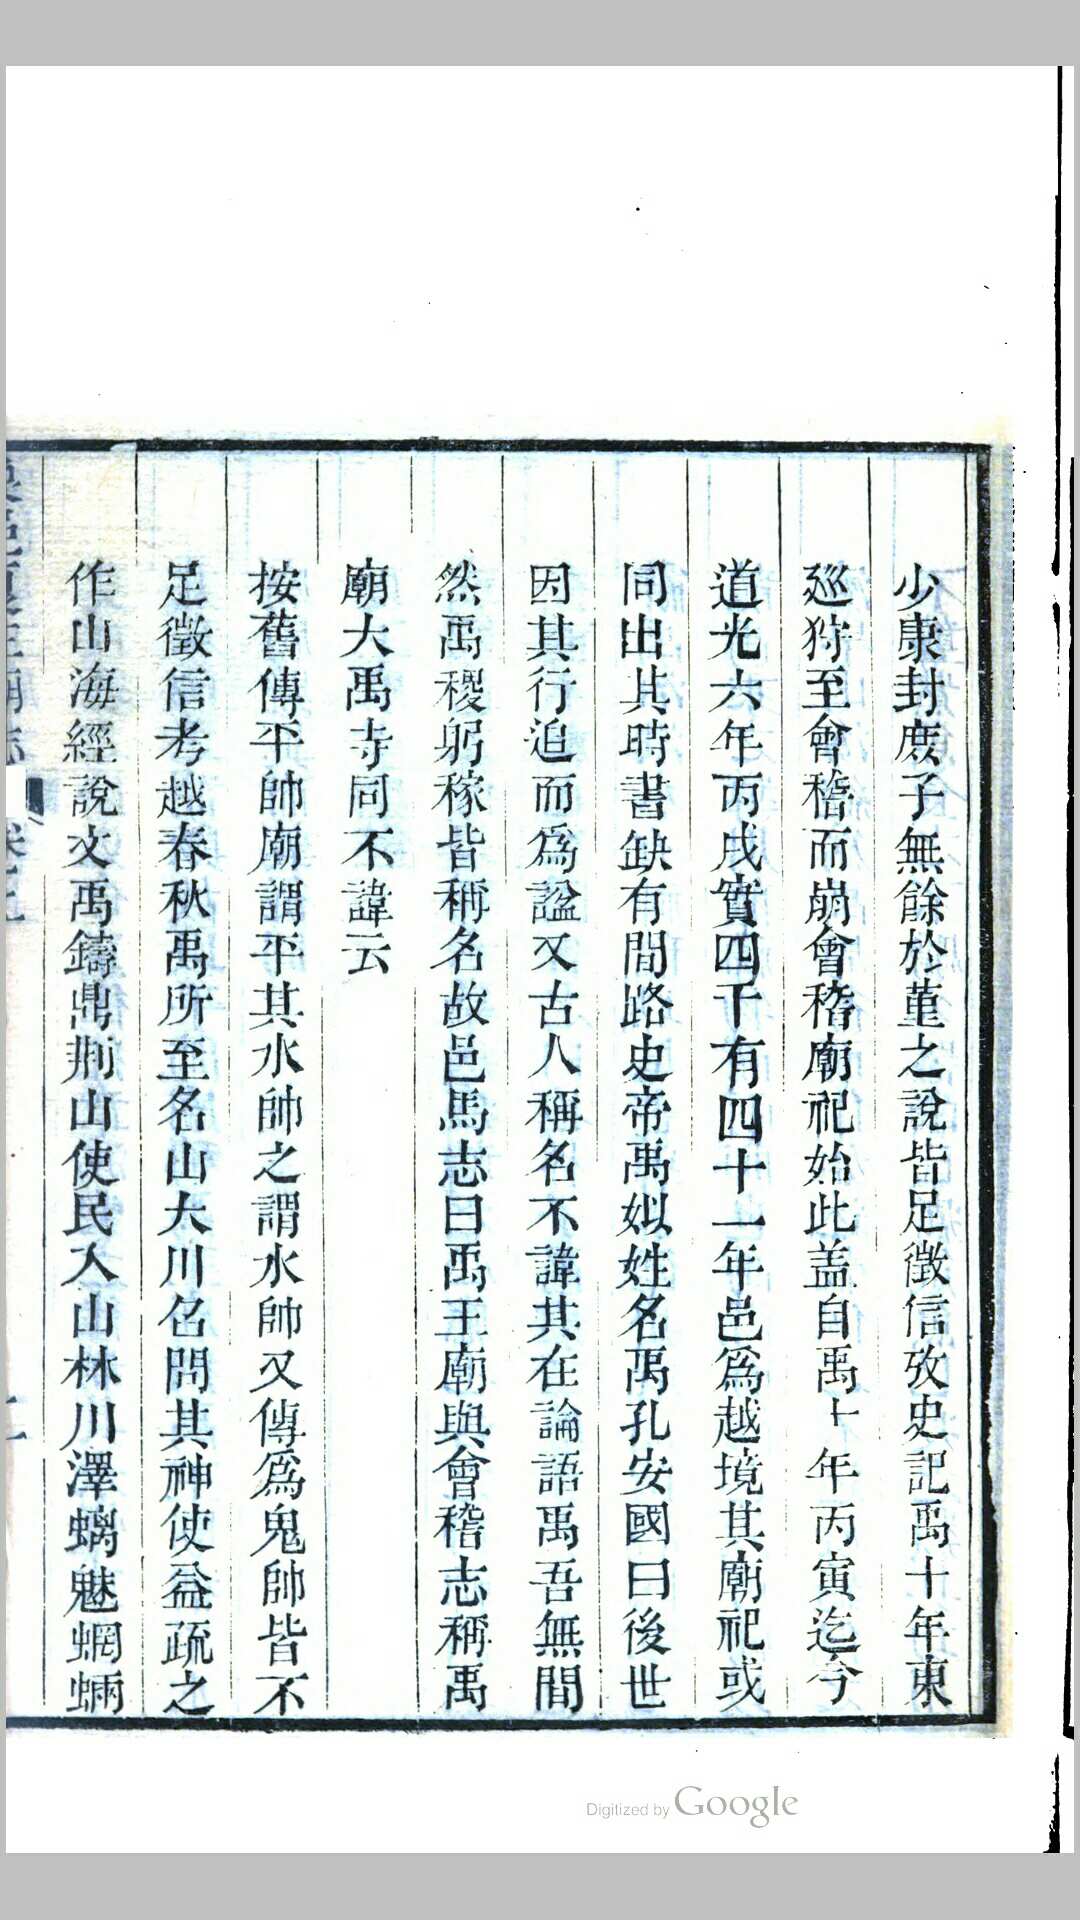 少康封庶子無餘於菫之說皆足徵信攷史記禹十年東
巡狩至會稽而崩會稽廟祀始此盖自禹十年丙寅迄今
道光六年丙戌實四千有四十一年邑爲越境其廟祀或
同出其時書缺有間路史帝禹姒姓名禹孔安國曰後世
因其行追而爲諡又古人稱名不諱其在論語禹吾無間
然禹稷躬稼皆稱名故邑馬志曰禹王廟與會稽志稱禹
廟大禹寺同不諱云
按舊傳平帥廟謂平其水帥之謂水帥又傳爲鬼帥皆不
足徵信考越春秋禹所至名山大川召問其神使益疏之
作山海經說文禹鑄鼎荆山使民入山林川澤螭魅蝄蜽
Digitized by Google